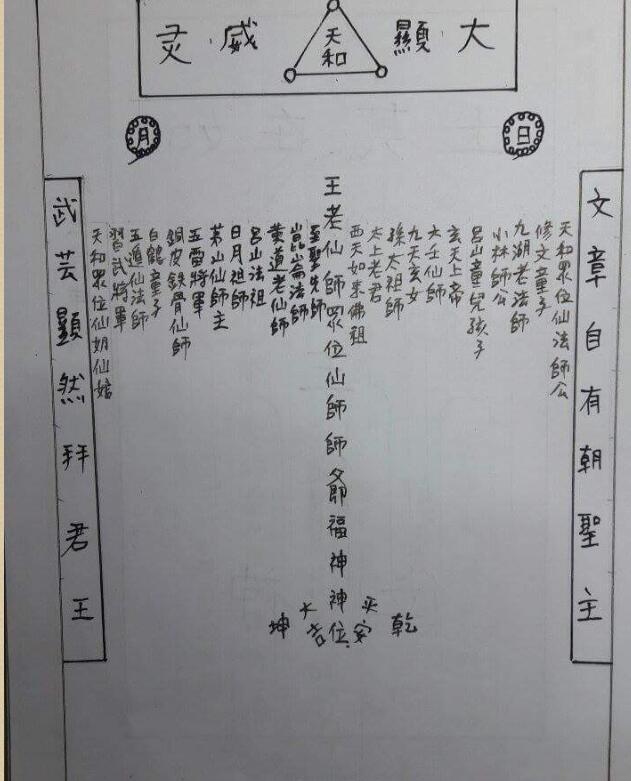 大顯
天和
威灵
日
月
文章自有朝聖主
天和眾位仙法師公
修文童子
九湖老法師
小林師公
呂山童兒孩子
玄天上帝
六壬仙師
九天玄女
孫太祖師
太上老君
西天如来佛祖
王老仙師眾位仙師師爺福神神位
至聖先師
崑崙法師
黄道老仙師
呂山法祖
日月祖師
茅山仙師主
五雷將軍
銅皮鉄骨仙師
白鶴童子
五遁仙法師
習武將軍
天和眾位仙姐仙姑
武芸顯然拜君王
乾
平安
大吉
坤